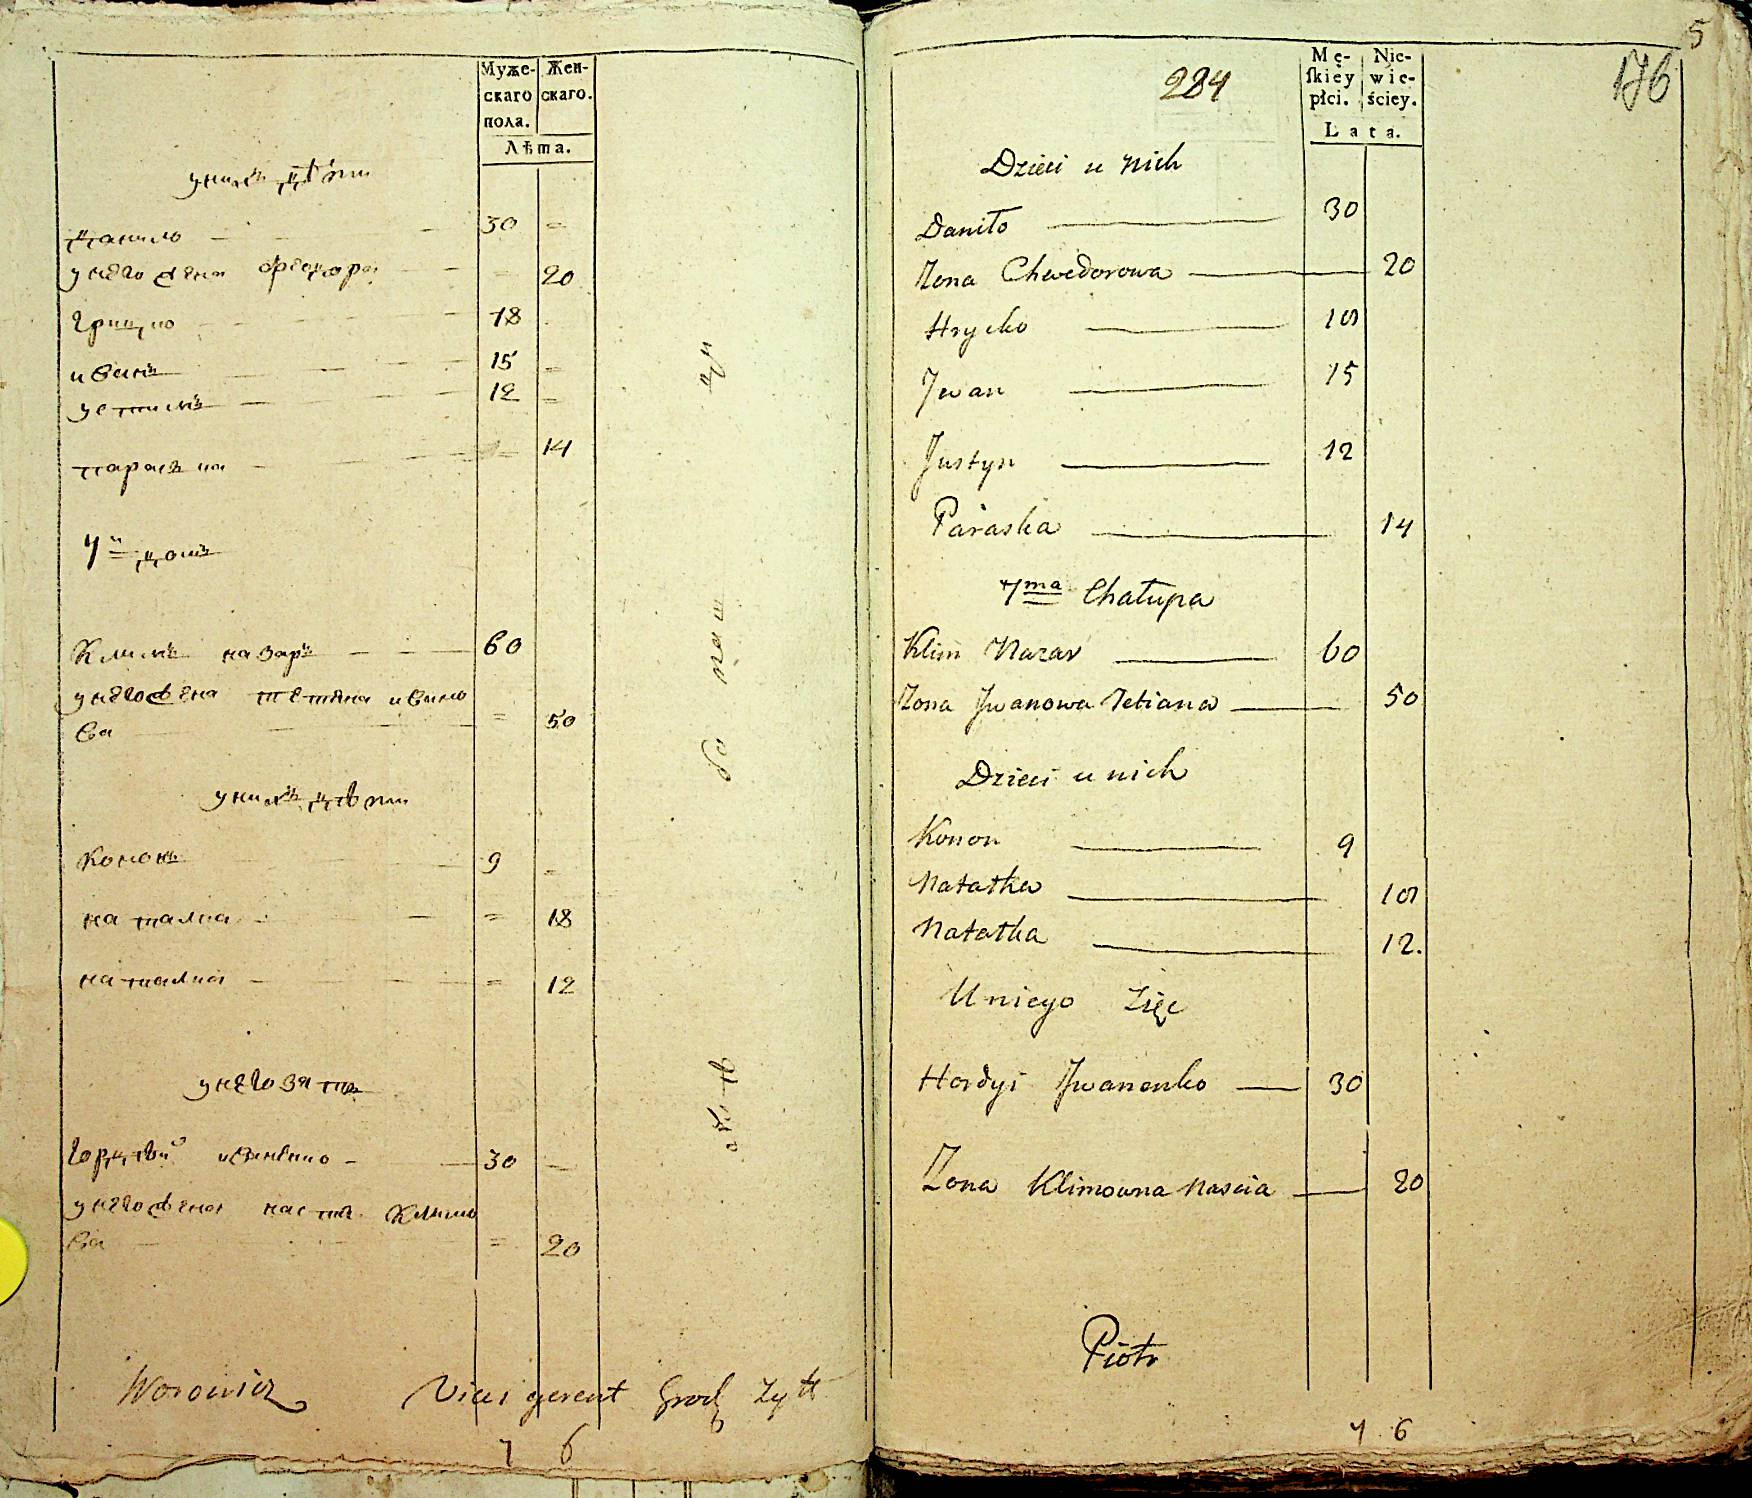 Муже-
скаго
пола.
Жен-
скаго.
Лѣта.
унихъ дѣти
данило 30
унего жена фѣодора 20
грицко 18
иванъ 15
устимъ 12
параска 14
7й домъ
Климъ назаръ 60
унего жена тетяна ивано
ва 50
унихъ дѣти
Кононъ 9
наталка 18
наталка 12
унего зять
гордѣй иваненко 30
унего жена настя Климо
ва 20
Woronicz Vices gerent Grod Zytt
7 6
5
176
284
Mę-
skiey
płci.
Nie-
wie-
ściey.
Lata.
Dzieci u nich
Daniło 30
Zona Chwedorowa 20
Hrycko 18
Jwan 15
Justyn 12
Paraska 14
7ma Chałupa
Klim Nazar 60
Zona Jwanowa Tetiana 50
Dzieci u nich
Konon 9
Natałka 18
Natałka 12.
U niego Zięć
Hordyi Jwanenko 30
Zona Klimowna Nascia 20
Piotr
7 6